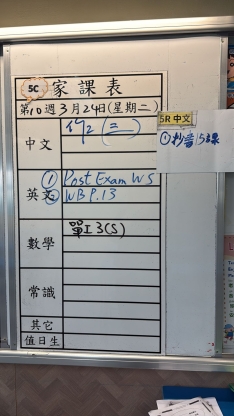 5C 家課表
第10週3月24日(星期二)
中文 作2 (三)
5R 中文
①抄音15課
英文 ① Post Exam WS
② WB P.13
數學 單I 3(S)
常識
其它
值日生